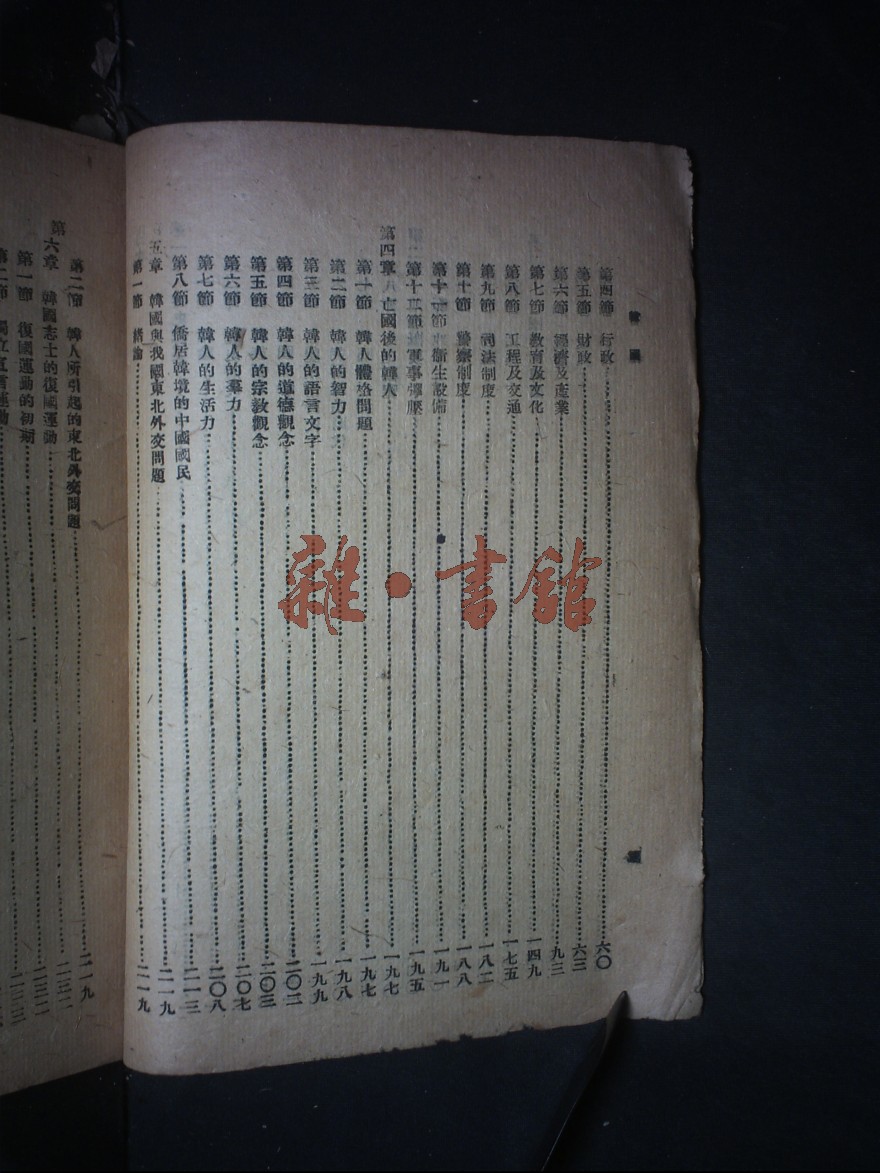 韓國
第四節 行政 六〇
第五節 財政 六三
第六節 經濟及產業 九三
第七節 教育及文化 一四九
第八節 工程及交通 一七五
第九節 司法制度 一八二
第十節 警察制度 一八八
第十一節 衞生設備 一九一
第十二節 軍事彈壓 一九五
第四章 亡國後的韓人 一九七
第一節 韓人體格問題 一九七
第二節 韓人的智力 一九八
第三節 韓人的語言文字 一九九
第四節 韓人的道德觀念 二〇二
第五節 韓人的宗敎觀念 二〇三
第六節 韓人的羣力 二〇七
第七節 韓人的生活力 二〇八
第八節 僑居韓境的中國國民 二一三
五章 韓國與我國東北外交問題 二一九
第一節 緒論 二一九
第二節 韓人所引起的東北外交問題 二一九
第六章 韓國志士的復國運動
第一節 復國運動的初期
第二節 獨立宣言運動
雜·書館